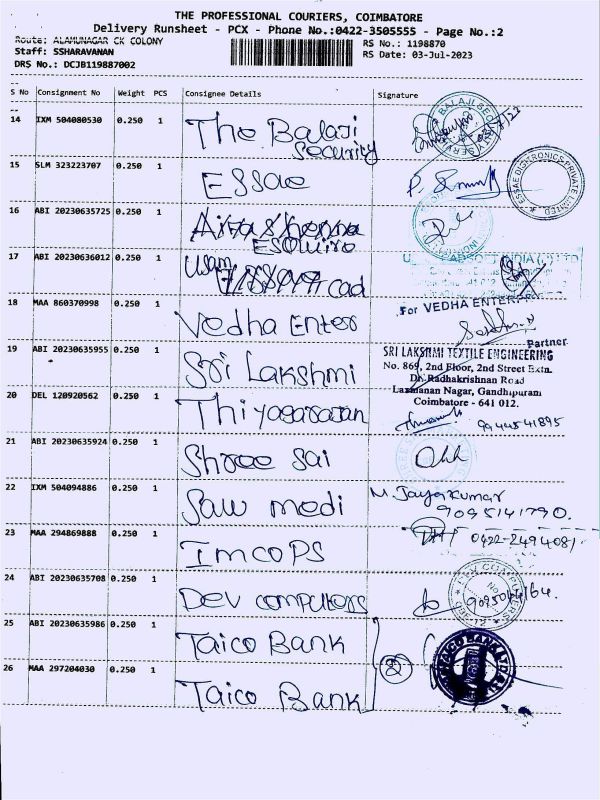 THE PROFESSIONAL COURIERS, COIMBATORE
Delivery Runsheet - PCX - Phone No.:0422-3505555 - Page No.:2
Route: ALAMUNAGAR CK COLONY
RS No.: 1198870
Staff: SSHARAVANAN
RS Date: 03-Jul-2023
DRS No.: DCJB119887002
S No Consignment No Weight PCS Consignee Details Signature
14 IXM 504080530 0.250 1 The Balaji
Security
15 SLM 323223707 0.250 1 ESSae
ESSAE DIGITRONICS PRIVATE LIMITED
16 ABI 20230635725 0.250 1
ESQuire
17 ABI 20230636012 0.250 1 Usam
cad
18 MAA 860370998 0.250 1 Vedha Enter
For VEDHA ENTERPR
Partner
19 ABI 20230635955 0.250 1 Sri Lakshmi
SRI LAKSHMI TEXTILE ENGINEERING
No. 869, 2nd Floor, 2nd Street Extn.
Dr. Radhakrishnan Road
Laxmanan Nagar, Gandhipuram
Coimbatore - 641 012.
20 DEL 120920562 0.250 1 Thiyagarajan
9944541895
21 ABI 20230635924 0.250 1 Shree Sai
22 IXM 504094886 0.250 1 Saw medi
M. Jayakumar
9095141790.
23 MAA 294869888 0.250 1 IMCOPS
0422-2494081
24 ABI 20230635708 0.250 1 Dev computers
DEV COMPUTERS
9095044164.
25 ABI 20230635986 0.250 1 Taico Bank
2
26 MAA 297204030 0.250 1 Taico Bank